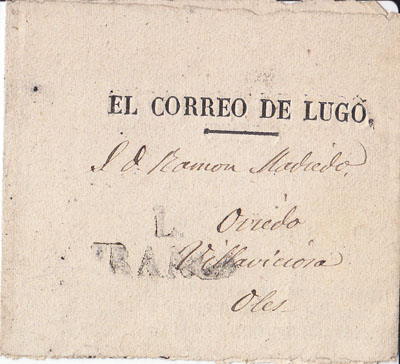 EL CORREO DE LUGO.
S. D. Ramon Madiedo.
L.
Oviedo
Villaviciosa
Oles